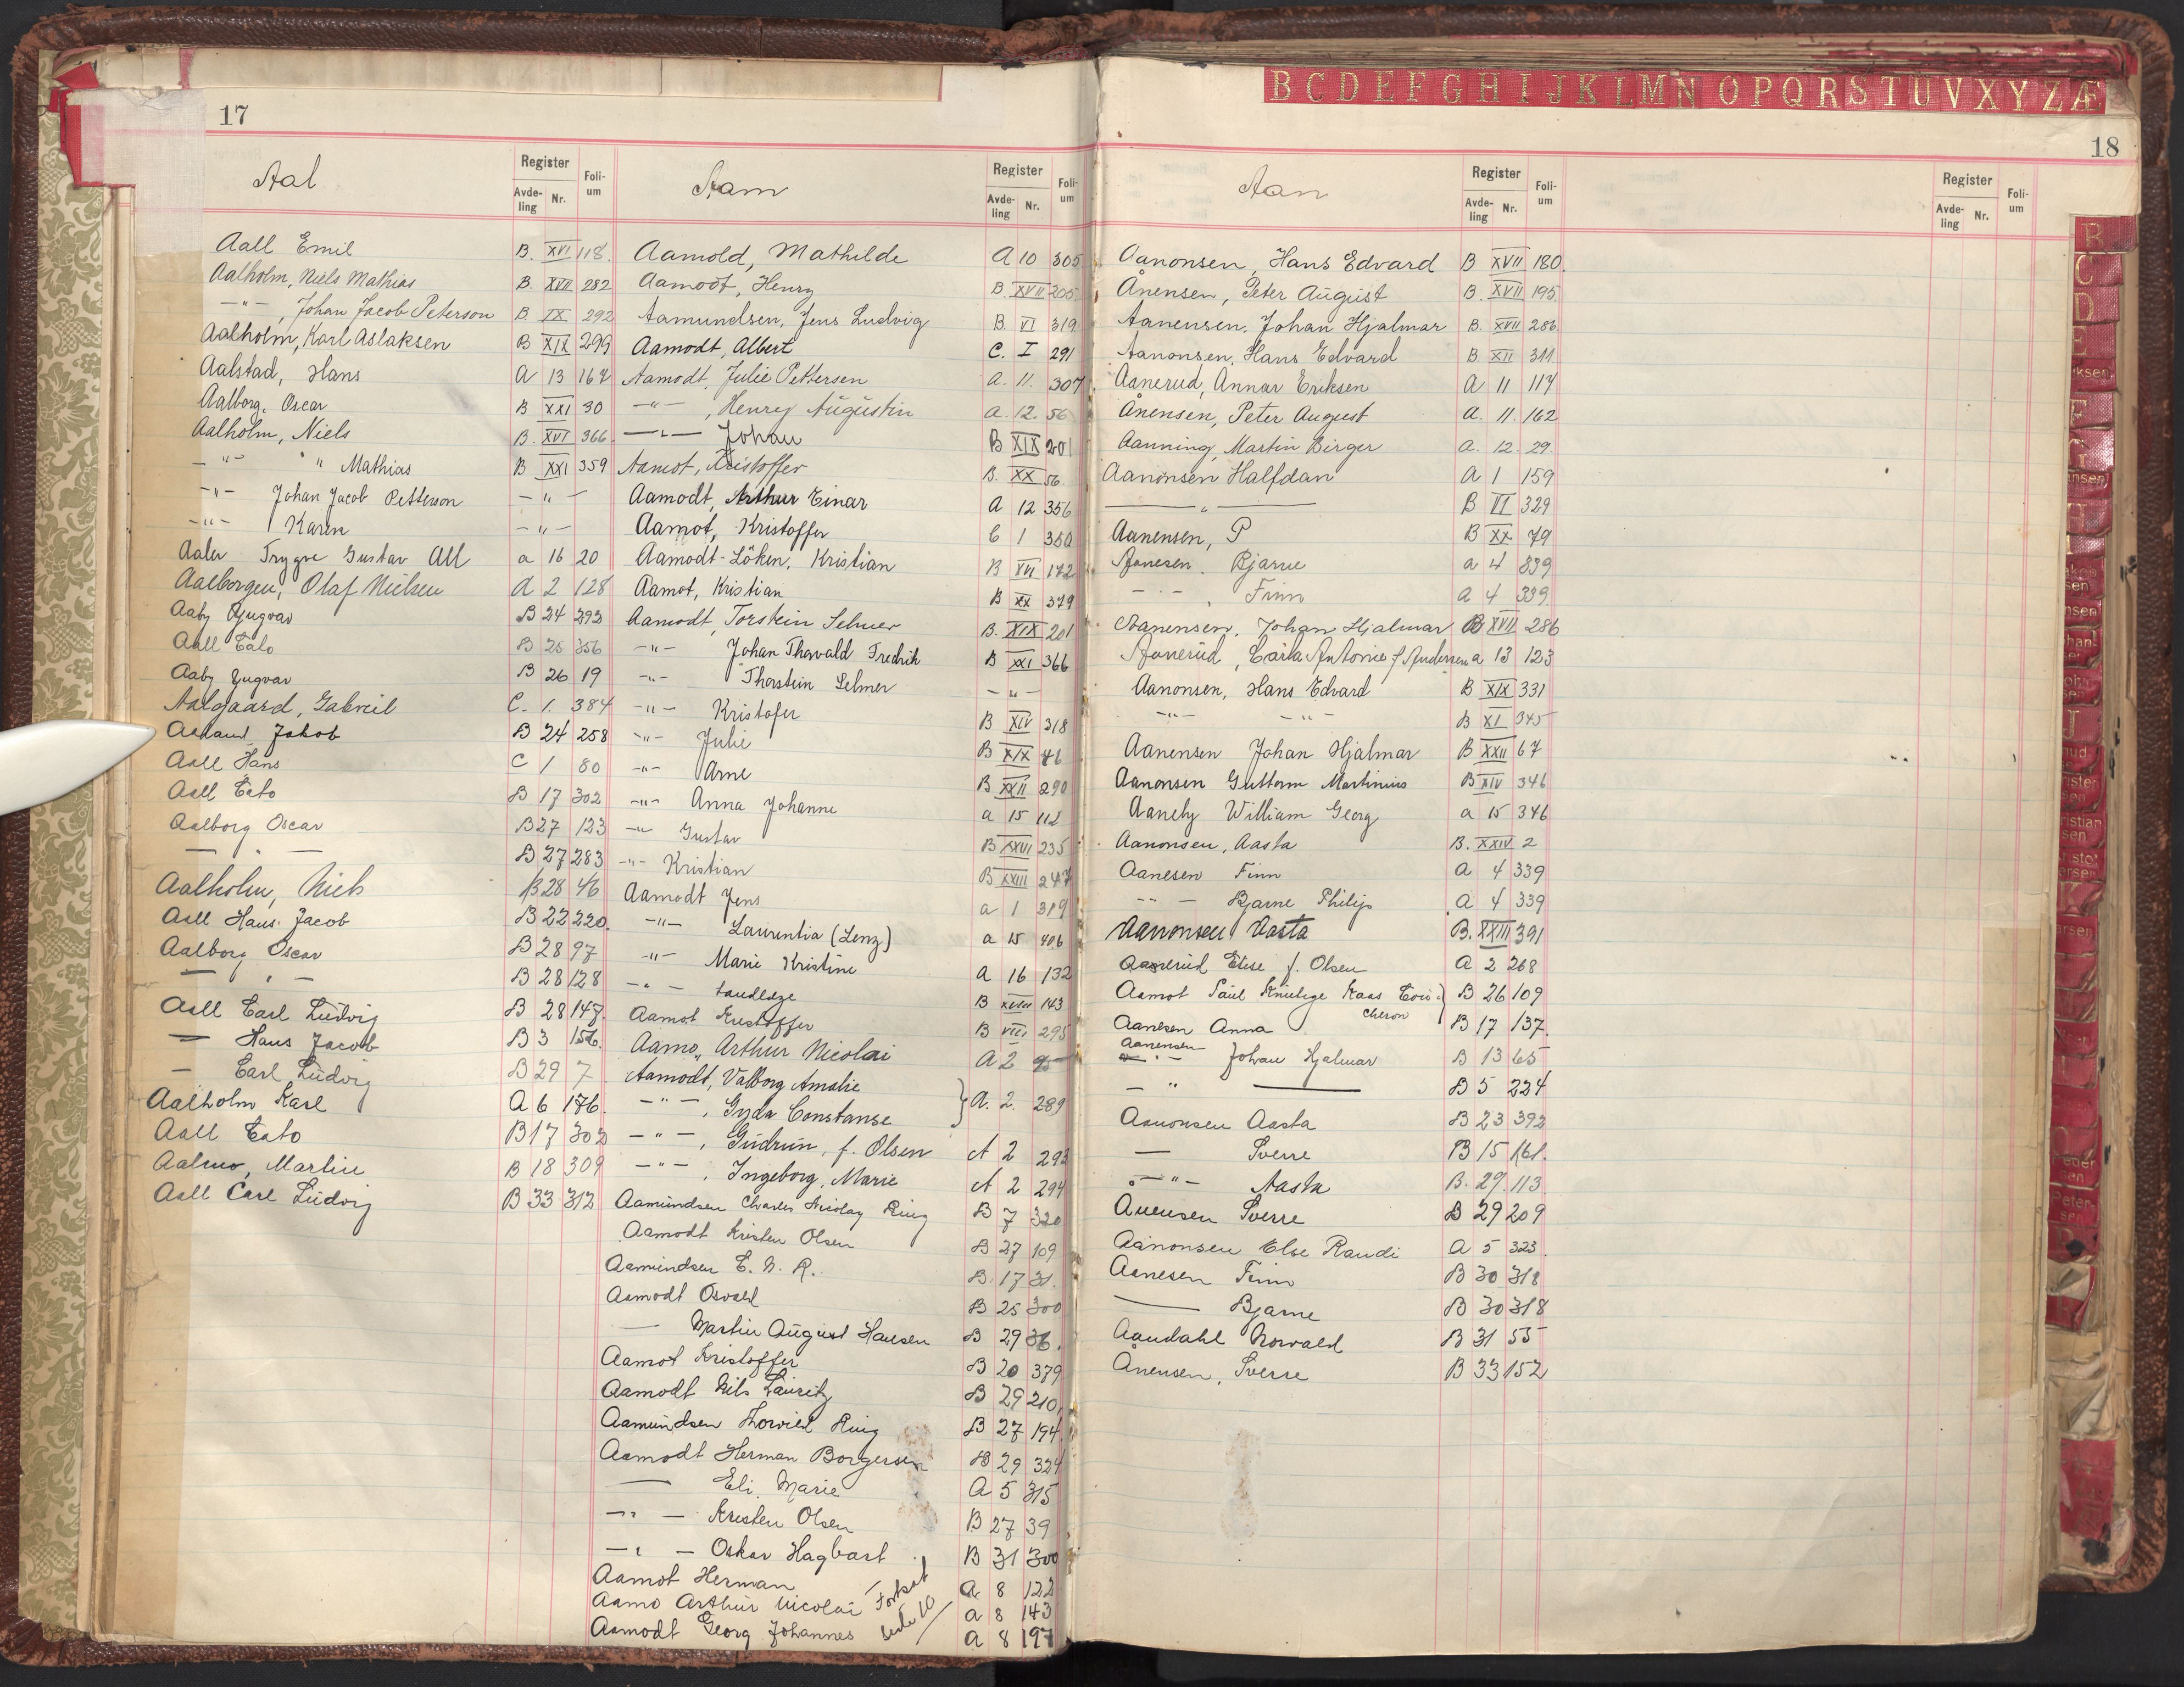 17
Aal
Register
Avde-
ling
Nr.
Foli-
um
Aall Emil B. XVI 118.
Aalholm, Niels Mathias B. XVII 282
-"-, Johan Jacob Peterson B. IX 292
Aalholm, Karl Aslaksen B XIX 299
Aalstad, Hans A 13 167
Aalborg, Oscar B XXI 30
Aalholm, Niels B. XVI 366
-"- " Mathias B XXI 359
-"- Johan Jacob Petterson -"-
-"- Karen -"-
Aaler Trygve Gustav All a 16 20
Aalborgen, Olaf Nielsen A 2 128
Aaby Yngvar B 24 393
Aall Cato B 25 356
Aaby Yngvar B 26 19
Aalgaard, Gabreil C. 1. 384
Jakob B 24 258
Aall Hans C 1 80
Aall Cato B 17 302
Aalborg Oscar B 27 123
— " — B 27 283
Aalholm, Niels B 28 46
Aall Hans Jacob B 22 220.
Aalborg Oscar B 28 97
— " — B 28 128
Aall Carl Ludvig B 28 147.
— Hans Jacob B 3 156.
— Carl Ludvig B 29 7
Aalholm Karl A 6 176.
Aall Cato B 17 302
Aalmo, Martin B 18 309
Aall Carl Ludvig B 33 312
Aam
Register
Avde-
ling
Nr.
Foli-
um
Aamold, Mathilde A 10 305
Aamodt, Henry B. XVII 205
Aamundsen, Jens Ludvig B. VI 319
Aamodt, Albert C. I 291
Aamodt, Julie Pettersen A. 11. 307
-"-, Henry Augustin A. 12. 56
-"- Johan B XIX 201
Aamot, Kristoffer B. XX 56
Aamodt, Arthur Einar A 12 356
Aamot, Kristoffer C 1 350
Aamodt-Löken, Kristian B VII 172
Aamot, Kristian B XX 379
Aamodt, Torstein Selmer B. XIX 201
-"- Johan Thorvald Fredrik B XXI 366
-"- Thorstein Selmer -"-
-"- Kristofer B XIV 318
-"- Julie B XIX 46
-"- Arne B XXII 290
-"- Anna Johanne a 15 112
-"- Gustav B XXVI 235
-"- Kristian B XXIII 247
Aamodt Jens a 1 319
-"- Laurentia (Lenz) a 15 406
-"- Marie Kristine A 16 132
-"- B XVIII 143
Aamot Kristoffer B VIII 295
Aamo, Arthur Nicolai A 2 95
Aamodt, Valborg Amalie
-"-, Gyda Constanse } A. 2. 289
-"-, Gudrun, f. Olsen A 2 293
-"-, Ingeborg, Marie A 2 294
Aamundsen Charles Nicolay Ring B 7 320
Aamodt Kristen Olsen B 27 109
Aamundsen C. N. R. B. 17 31.
Aamodt Osvald B 25 300
— Martin August Hansen B 29 36.
Aamot Kristoffer B 20 379
Aamodt Nils Lauritz B 29 210
Aamundsen Thorvild Ring B 27 194
Aamodt Herman Borgersen B 29 324
— Eli. Marie A 5 315
-"- Kristen Olsen B 27 39
-"- Oskar Hagbart B 31 300
Aamot Herman A 8 122
Aamo Arthur Nicolai a 8 143
Aamodt Georg Johannes A 8 197
Fortsat
side 10
B C D E F G H I J K L M N O P Q R S T U V X Y Z Æ
18
Aan
Register
Avde-
ling
Nr.
Foli-
um
Aanonsen, Hans Edvard B XVII 180.
Ånensen, Peter August B. XVII 195.
Aanensen, Johan Hjalmar B. XVII 286.
Aanonsen, Hans Edvard B. XII 311
Aanerud, Annar Eriksen A 11 117
Ånensen, Peter August A. 11. 162
Aanning, Martin Birger A. 12. 29.
Aanonsen Halfdan A 1 159
— " — B VI 329
Aanensen, P B XX 79
Aanesen, Bjarne a 4 339
- " -, Finn A 4 339
Aanensen, Johan Hjalmar B XVII 286
Aanerud, Carla Antonie f Andersen a 13 123
Aanonsen, Hans Edvard B XIX 331
-"- -"- B XI 345
Aanensen Johan Hjalmar B XXII 67
Aanonsen Guttorm Martinius B XIV 346
Aaneby William Georg a 15 346
Aanonsen, Aasta B. XXIV 2
Aanesen Finn A 4 339
-"- Bjarne Philip A 4 339
Aanonsen Aasta B. XXIII 391
Aanerud Elise f. Olsen A 2 268
Aamot Paul Knutzge Kaas B 26 109
Aanesen Anna B 17 137.
Aanensen
-"- Johan Hjalmar B 13 65
-"- — B 5 224
Aanonsen Aasta B 23 392
— Sverre B 15 161.
-"- Aasta B. 29. 113
Anensen Sverre B 29 209
Aanonsen Else Randi A 5 323.
Aanesen Finn B 30 318
— Bjarne B 30 318
Aandahl Norvald B 31 55
Ånensen, Sverre B 33 152
Register
Avde-
ling
Nr.
Foli-
um